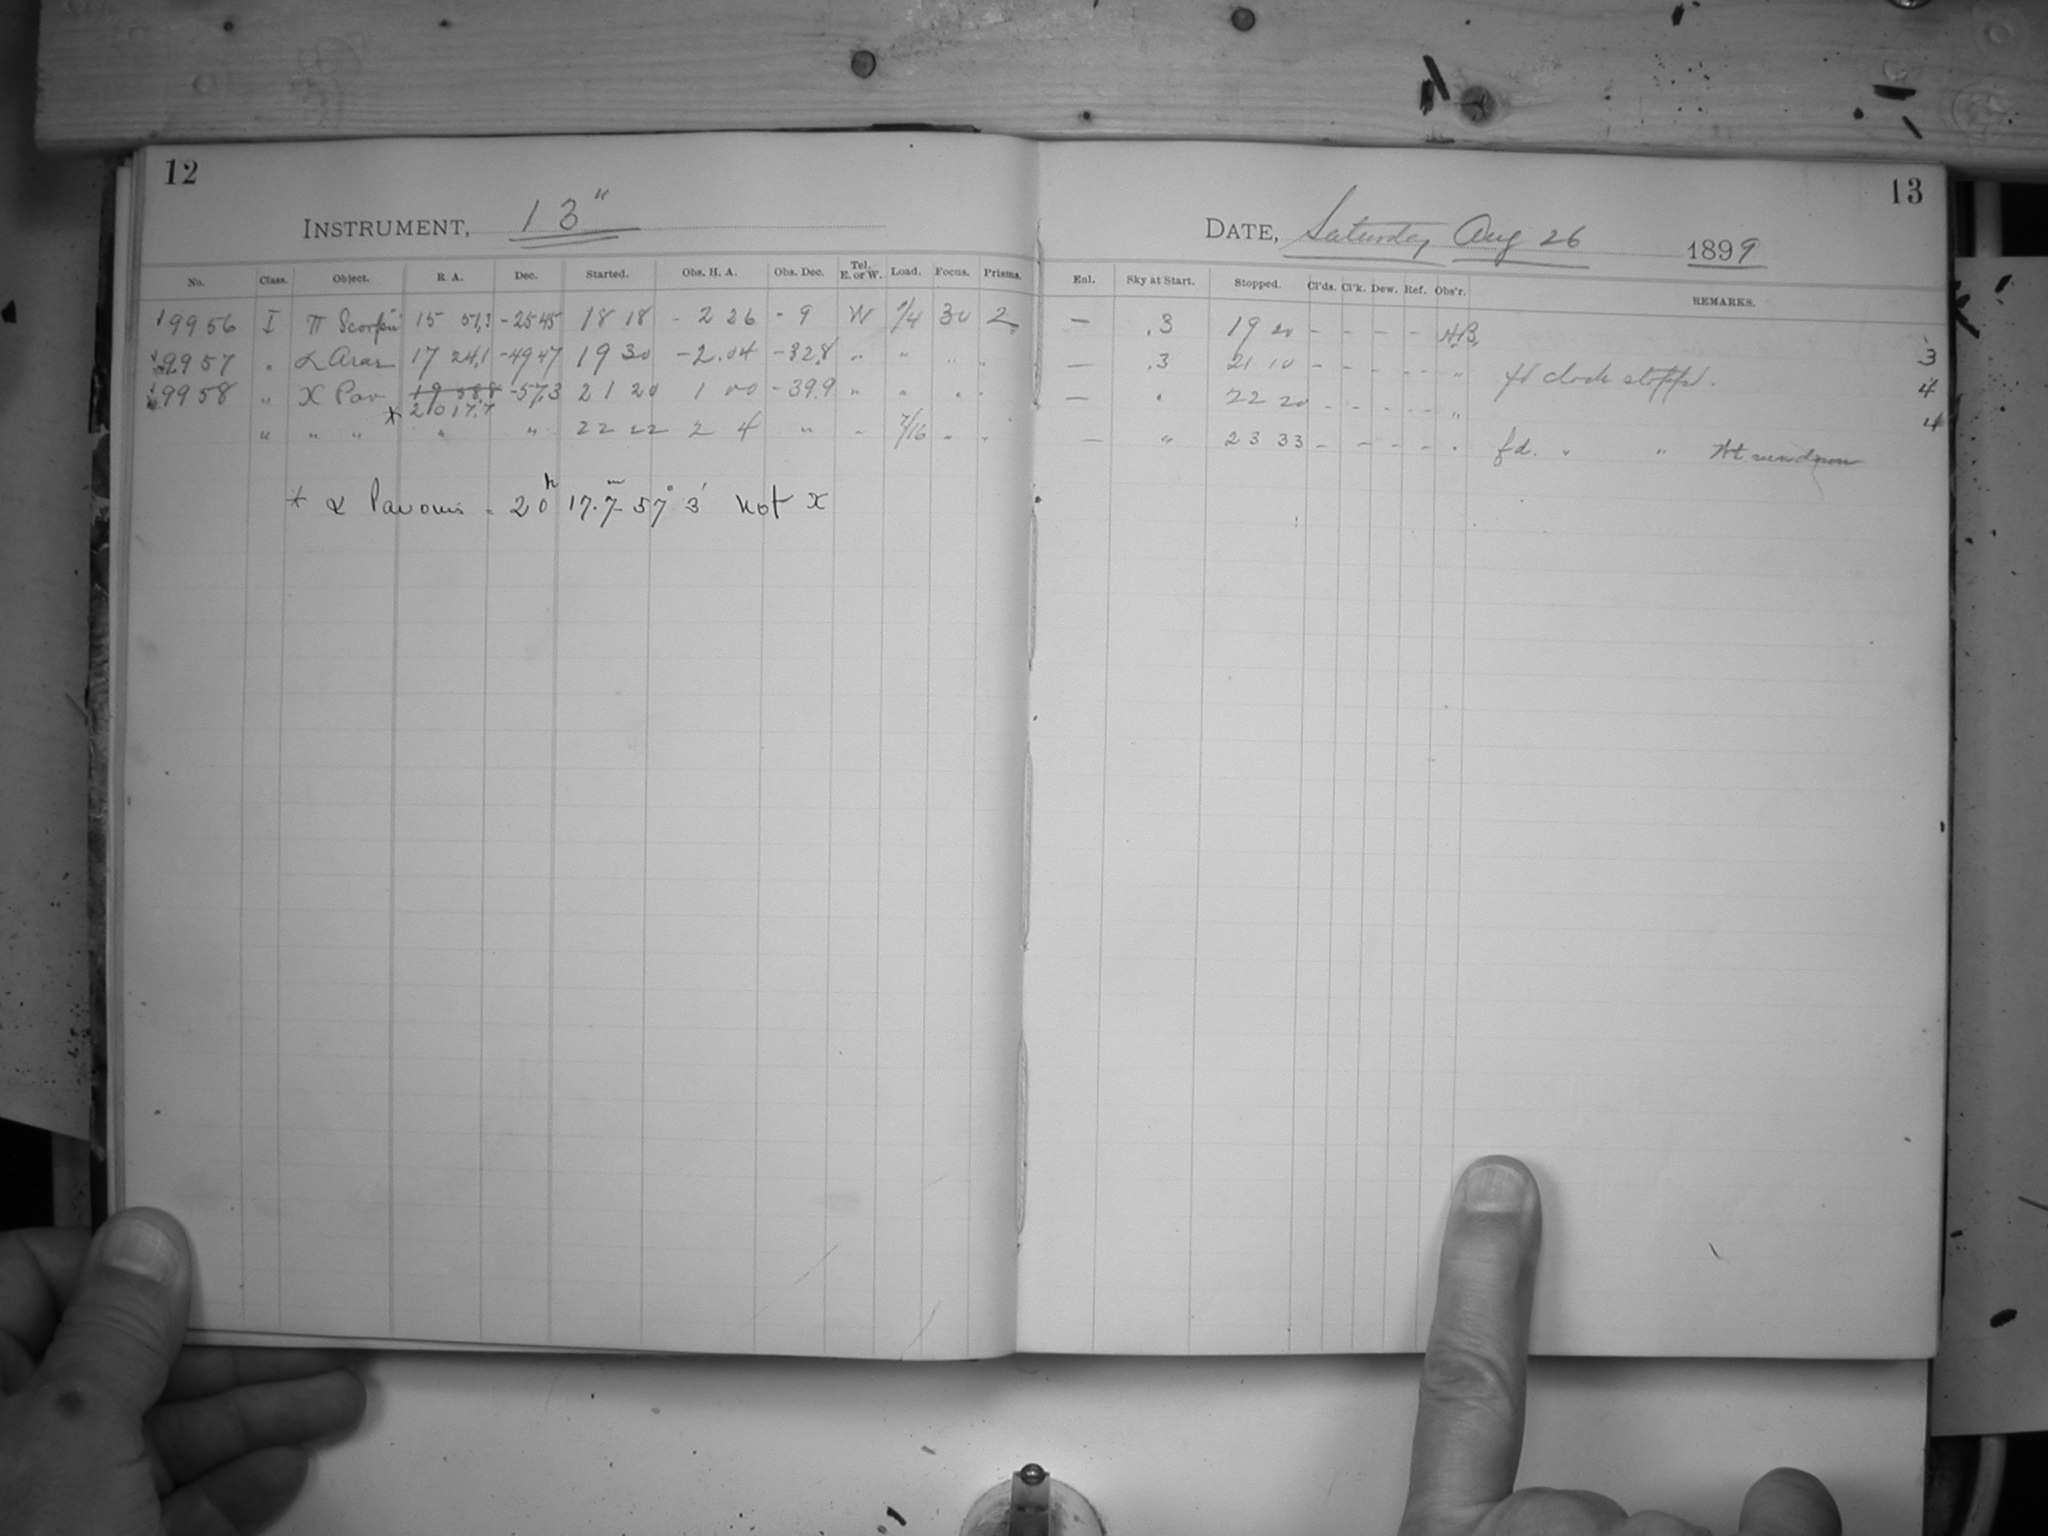 12
INSTRUMENT, 13"
No. Class. Object. R. A. Dec. Started. Obs. H. A. Obs. Dec. Tel. E. or W. Load. Focus. Prisms.
19956 I π Scorpii 15 57,3 -25 45 18 18 - 2 26 - 9 W 7/4 30 2
19957 " α Arae 17 24,1 -49 47 19 30 -2.04 -32,8 " " " "
19958 " X Pav 19 58,8 -57,3 21 20 1 00 -39.9 " " " "
* 20 17,7
" " " " " 22 22 2 4 " " 7/16 " "
* α Pavonis = 20h 17.7m 57° 3' not X
13
DATE, Saturday Aug 26 1899
Enl. Sky at Start. Stopped. Cl'ds. Cl'k. Dew. Ref. Obs'r. REMARKS.
— .3 19 20 - - - - 3
— .3 21 10 - - - - " fd clock stopped. 4
— " 22 20 - - - - " 4
— " 23 33 - - - - " fd. " "